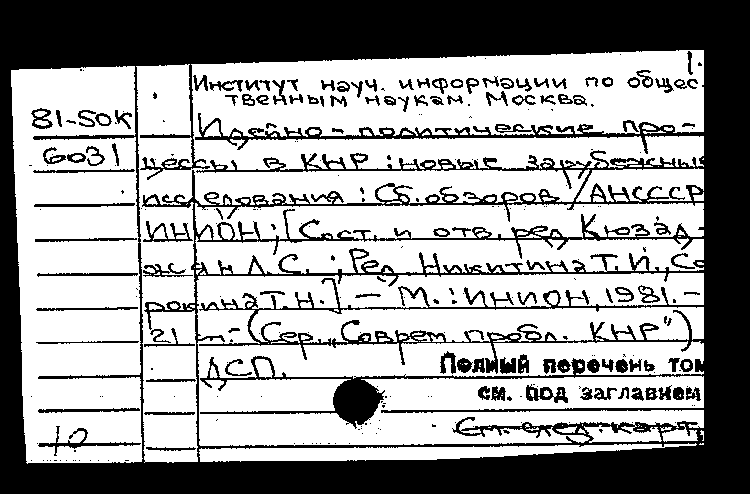 1.
Институт науч. информации по общес
твенным наукам. Москва.
81-SOK
6031
Идейно-политические про-
цессы в КНР : новые зарубежные
исследования : Сб. обзоров / АНСССР
ИНИОН; [Сост. и отв. ред. Кюзад-
жан Л.С. ; Ред. Никитина Т.И., Со
рокина Т.Н.]. – М. : ИНИОН, 1981. –
21 – (Сер. „Соврем. пробл. КНР")
ДСП.
Полный перечень том
см. под заглавием
См. след. карт.
10